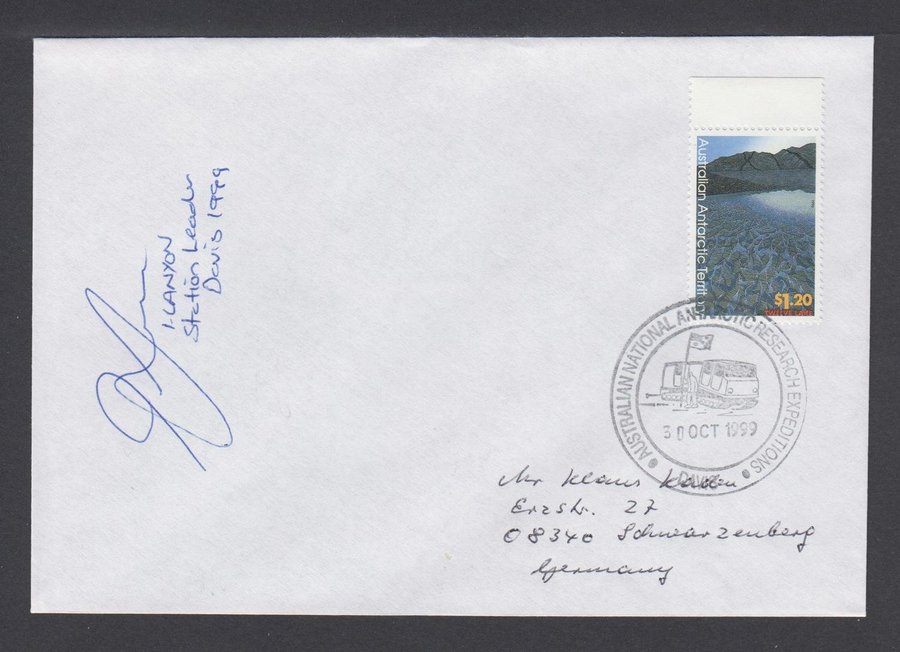 I. LANYON
Station Leader
Davis 1999
Australian Antarctic Territo
$1.20
TWELVE LAKE
AUSTRALIAN NATIONAL ANTARCTIC RESEARCH EXPEDITIONS
30 OCT 1999
DAVIS
Mr Klaus
Erzstr. 27
08340 Schwarzenberg
Germany